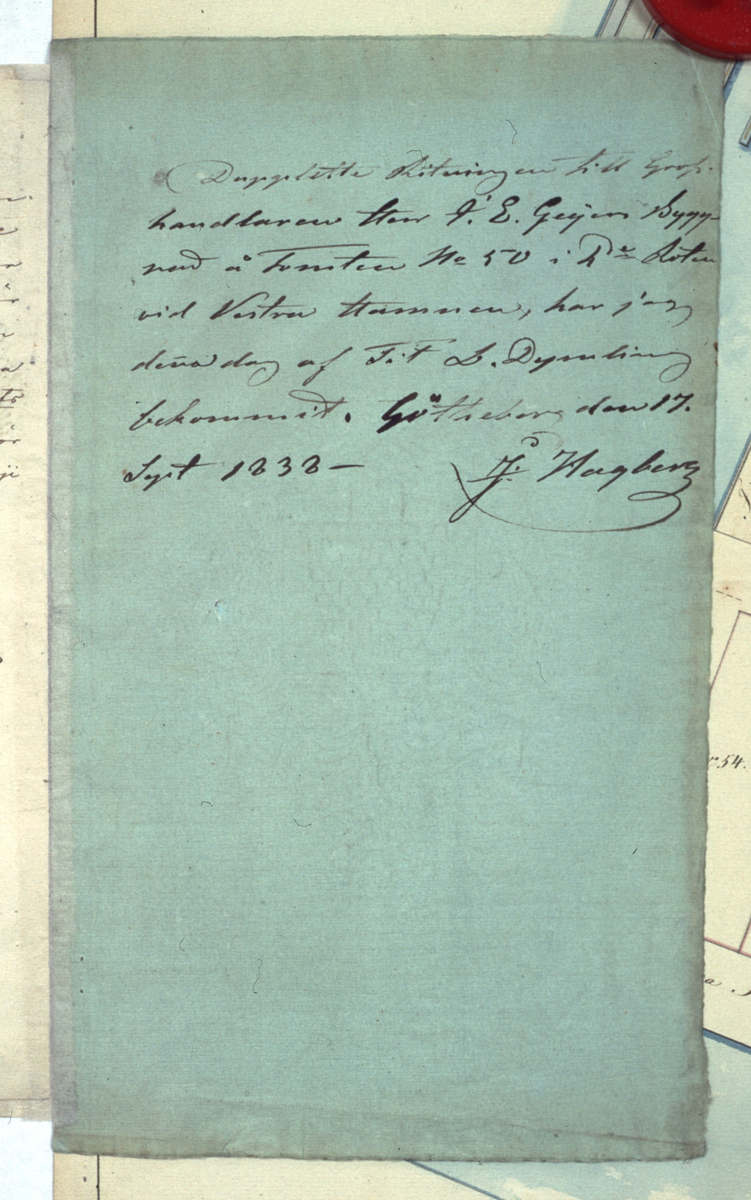 Dupplette Ritningen till Gross-
handlaren Herr A. E. Geijers Bygg-
nad å Tomten No 50 i Roten
vid Vestra Hamnen, har jag
denna dag af Tit B. Dymling
bekommit. Götheborg den 17.
Sept 1838 —
Hagberg
54.